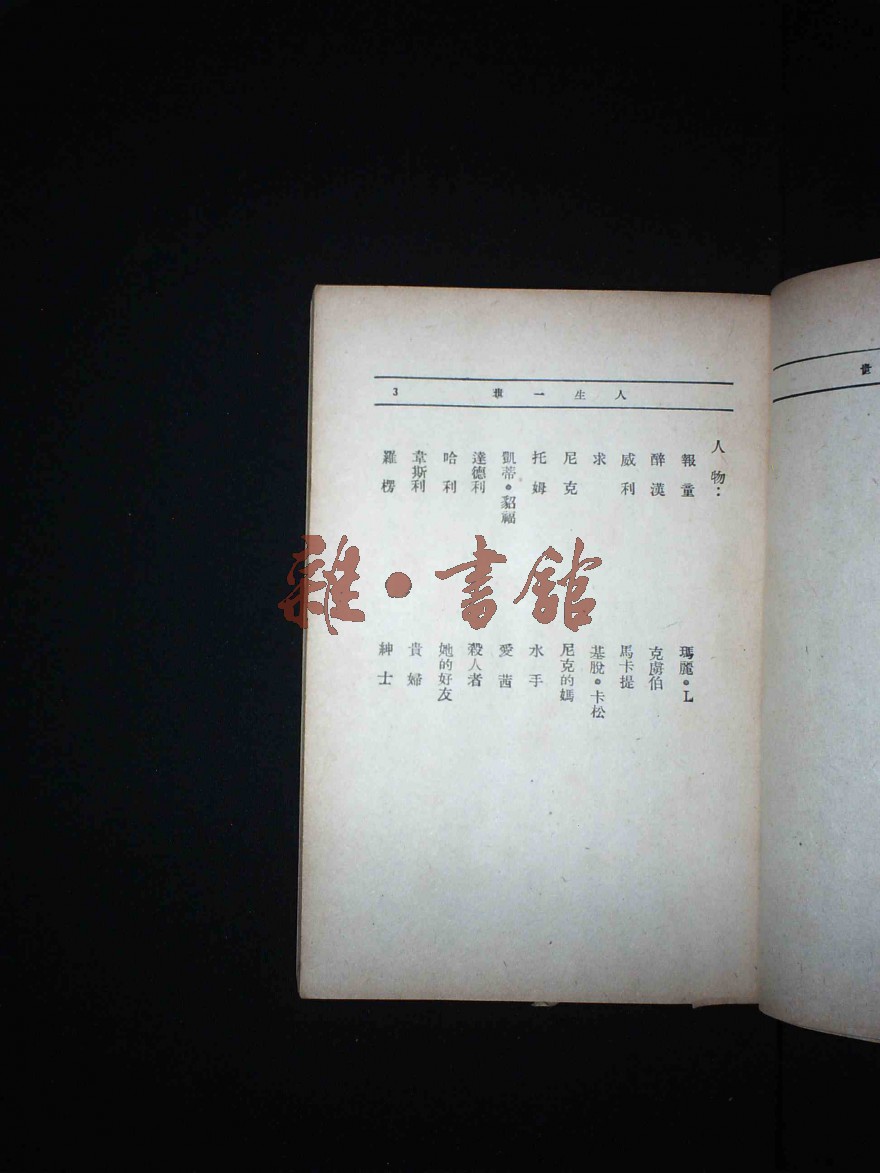 人生一世 3
人物：
報童
醉漢
威利
求
尼克
托姆
凱蒂·貂福
達德利
哈利
韋斯利
羅楞
瑪麗·L
克虜伯
馬卡提
基脫·卡松
尼克的媽
水手
愛茜
殺人者
她的好友
貴婦
紳士
雜·書館